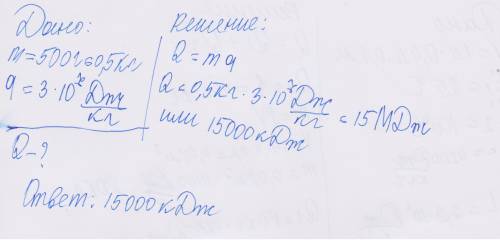 Дано:
m=500г=0,5кг
q = 3·10⁷ Дж/кг
Q-?
Решение:
Q = mq
Q=0,5кг·3·10⁷ Дж/кг = 15МДж
или 15000кДж
Ответ: 15000кДж